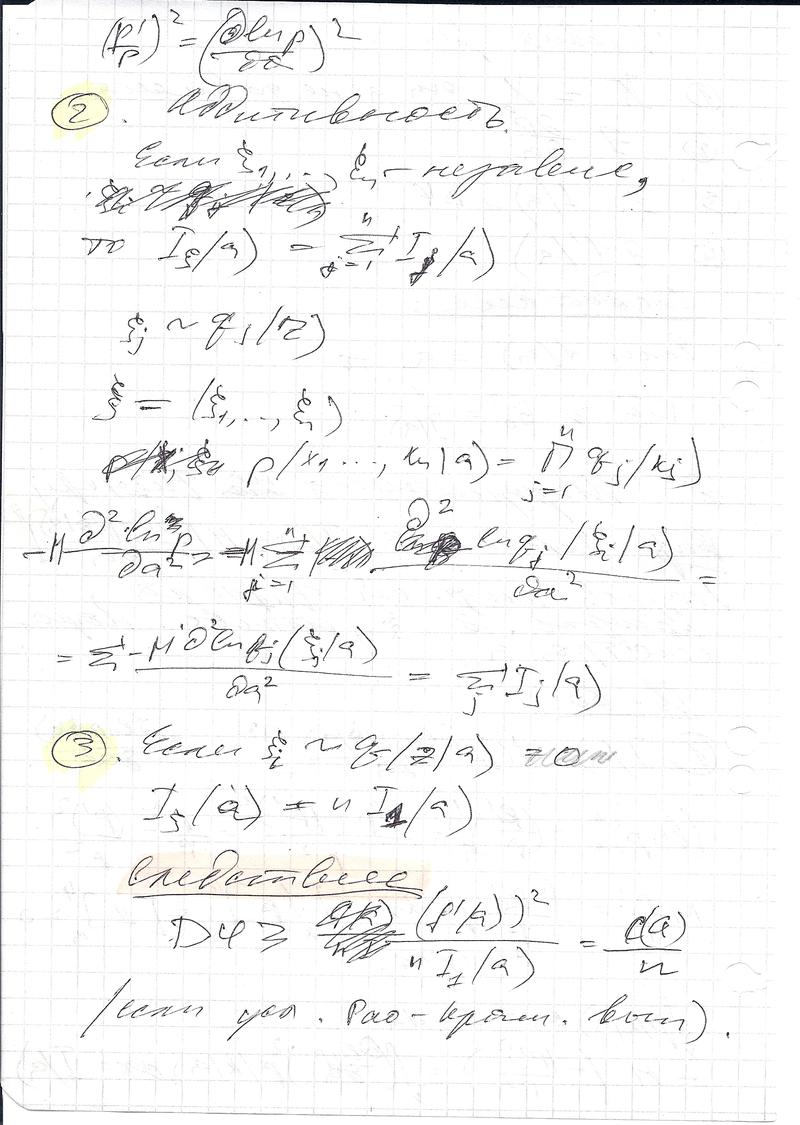 (p'/p)² = (∂ln p/∂a)²
② . Аддитивность.
Если ξ₁, ..., ξₙ - независ,
то I_ξ(a) = Σ_{j=1}^{n} I_j(a)
ξ_j ~ q_j(z)
ξ = (ξ₁, .., ξₙ)
p(x₁ ..., xₙ|a) = Π_{j=1}^{n} q_j(x_j)
-M ∂² ln p/∂a² = -M Σ_{j=1}^{n} ∂² ln q_j(ξ_j|a)/∂a² =
= Σ -M ∂² ln q_j(ξ_j|a)/∂a² = Σ_j I_j(a)
③ . Если ξ_i ~ q(z|a) то
I_ξ(a) = n I₁(a)
Следствие
Dφ ≥ (f'(a))²/n I₁(a) = c(a)/n
(если усл. Рао-Крам. вып).